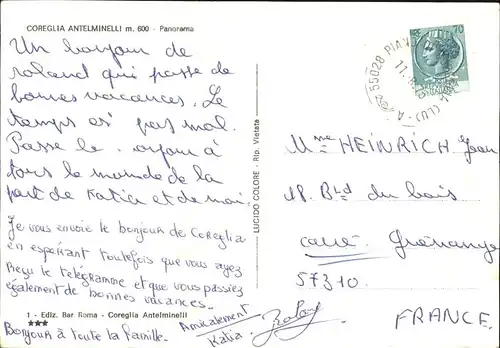 COREGLIA ANTELMINELLI m. 600 - Panorama
Un bonjour de
roland qui passe de
bonnes vacances. Le
temps est pas mal.
Passe le bonjour à
tous le monde de la
part de Katia et de moi.
Je vous envoie le bonjour de COREGLIA
en espérant toutefois que vous ayez
reçu le télégramme et que vous passiez
également de bonnes vacances.
1 - Ediz. Bar Roma - Coreglia Antelminelli
Bonjour à toute la famille.
Amicalement
Katia
LUCIDO COLORE - Rip. Vietata
55028 PIA
70
Mme HEINRICH Jean
18. Bld du bois
carré Guénange
57310.
FRANCE.